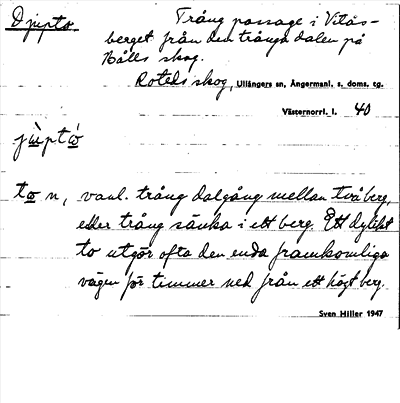 Djupto Trång passage i Vitås-
berget från den trånga dalen på
Hålls skog.
Rotels skog, Ullångers sn, Ångermanl. s. doms. tg.
Västernorrl. l. 40
jùptó
to n, vanl. trång dalgång mellan två berg,
eller trång sänka i ett berg. Ett dylikt
to utgör ofta den enda framkomliga
vägen för timmer ned från ett högt berg.
Sven Hiller 1947